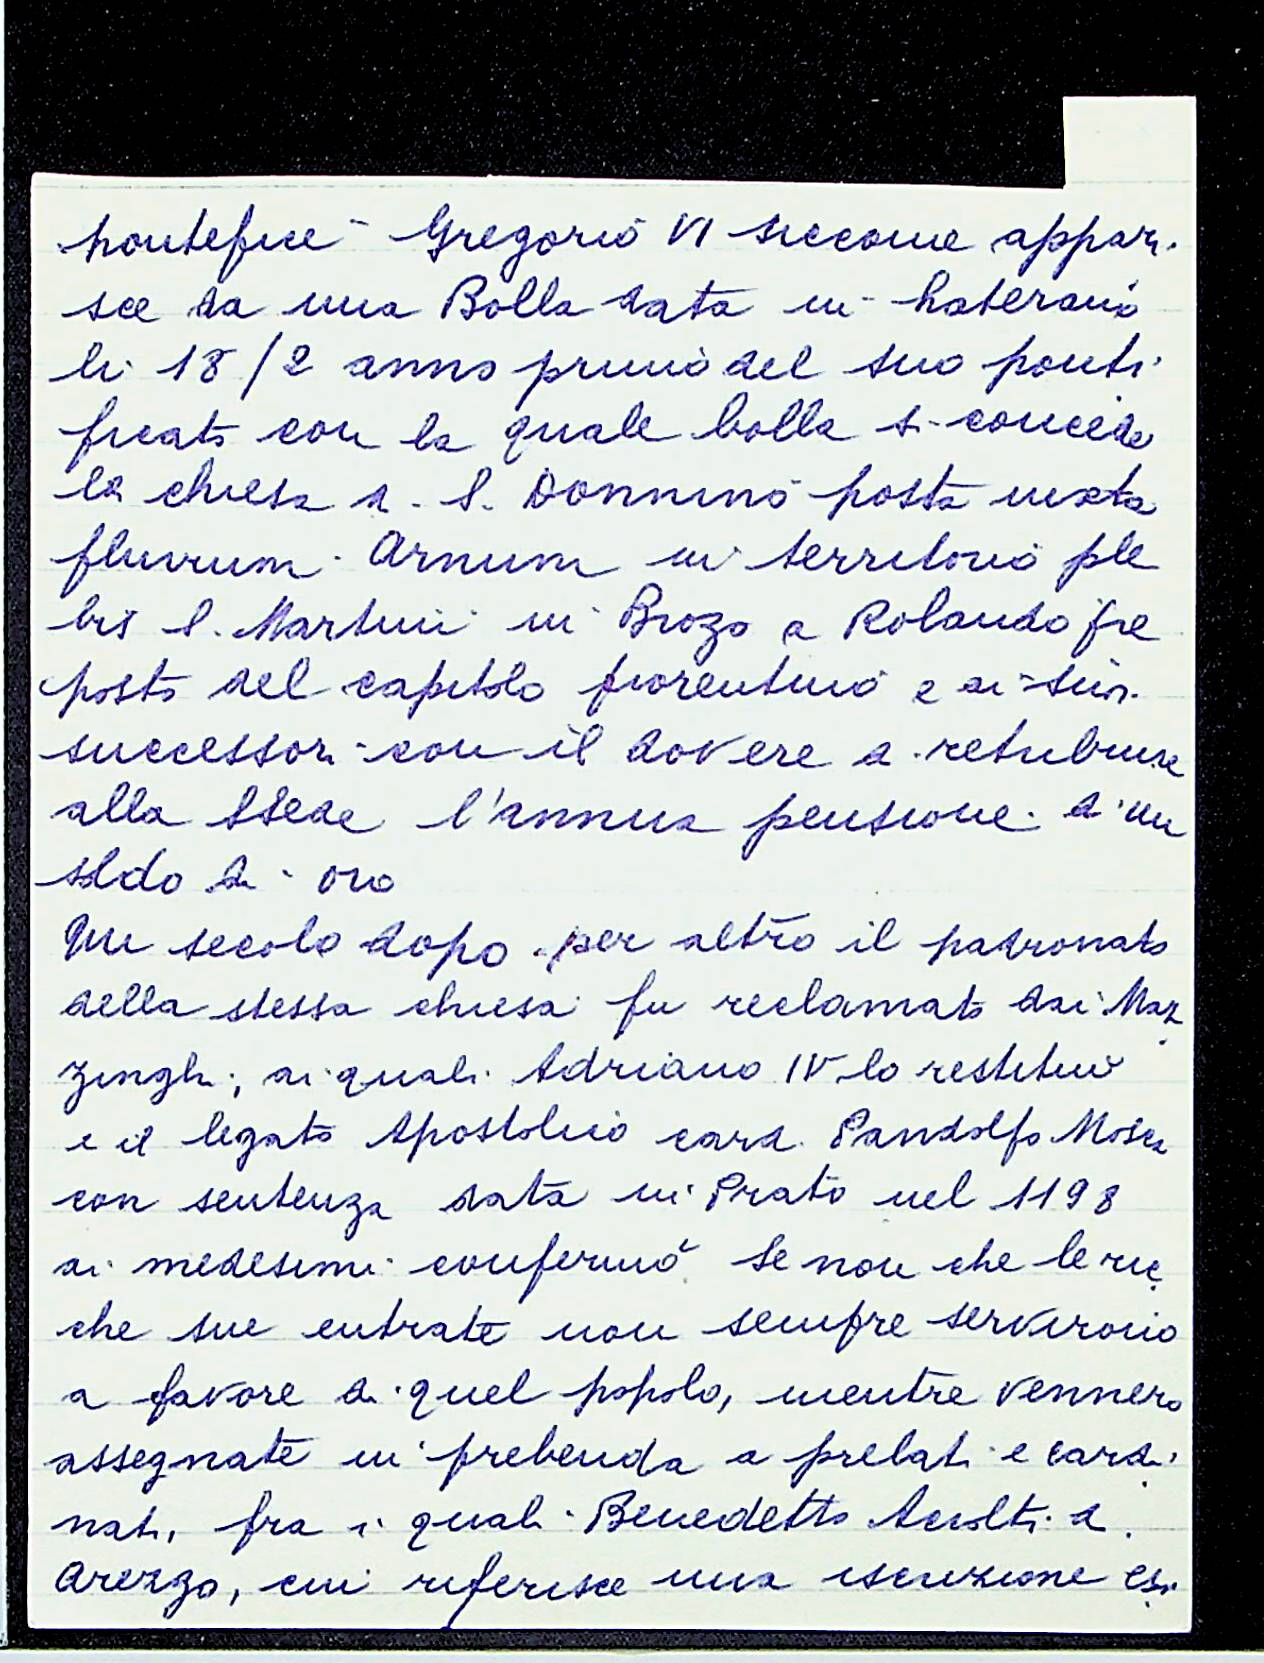 pontefice Gregorio VI siccome appari-
sce da una Bolla data in Laterano
li 18/2 anno primo del suo ponti-
ficato con la quale bolla si concede
la chiesa di S. Donnino posta iuxta
fluvium Arnum in territorio ple
bis S. Martini in Brozo a Rolando pre
posto del capitolo fiorentino e ai suoi
successori con il dovere di retribuire
alla SSede l'annua pensione d'un
soldo di oro
Un secolo dopo per altro il patronato
della stessa chiesa fu reclamato dai Maz
zinghi, ai quali Adriano IV lo restituì
e il legato Apostolico card. Pandolfo Mosca
con sentenza data in Prato nel 1198
ai medesimi confermò se non che le ric
che sue entrate non sempre servirono
a favore di quel popolo, mentre vennero
assegnate in prebenda a prelati e cardi-
nali, fra i quali Benedetto Accolti di
Arezzo, cui riferisce una iscrizione esi-